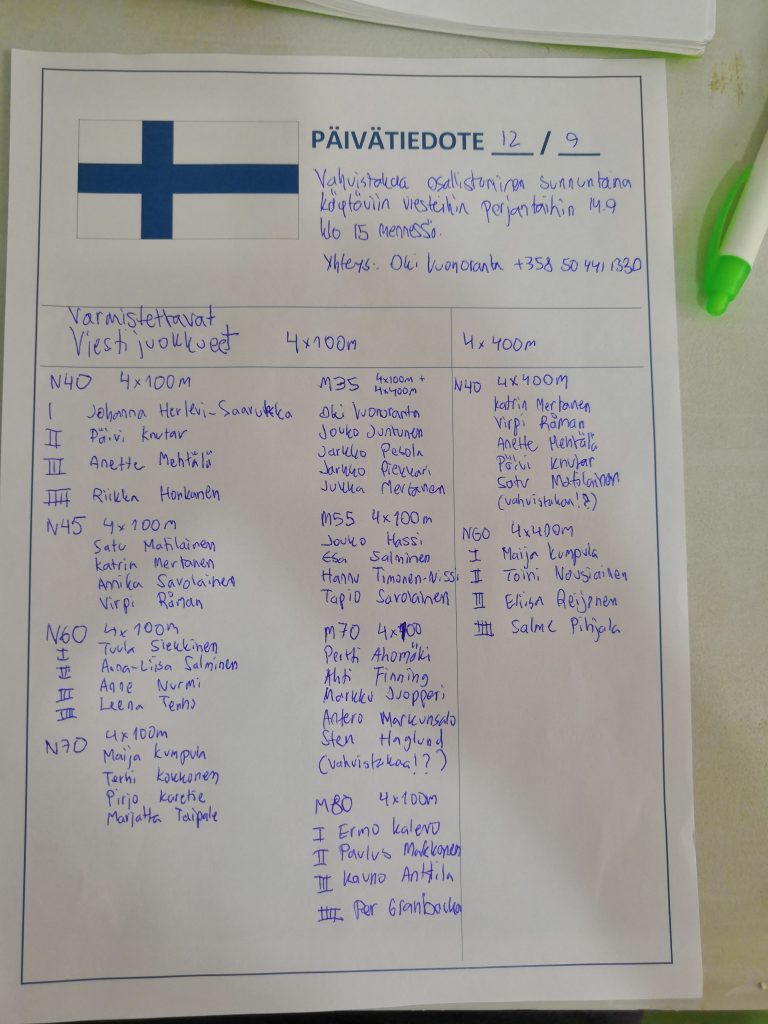 PÄIVÄTIEDOTE 12 / 9
Vahvistakaa osallistuminen sunnuntaina
käytäviin viesteihin perjantaihin 14.9
klo 15 mennessä.
Yhteys: Oki Vuonoranta +358 50 441 1330
Varmistettavat
Viestijuokkueet 4x100m 4x400m
N40 4x100m
I Johanna Herlevi-Saarukka
II Päivi Knutar
III Anette Mehtälä
IIII Riikka Honkanen
N45 4x100m
Satu Matilainen
Katrin Mertanen
Annika Savolainen
Virpi Råman
N60 4x100m
I Tuula Siekkinen
II Anna-Liisa Salminen
III Anne Nurmi
IIII Leena Tenho
N70 4x100m
Maija Kumpula
Terhi Kokkonen
Pirjo Karetie
Marjatta Taipale
M35 4x100m +
4x400m
Oki Vuonoranta
Jouko Juntunen
Jarkko Pesola
Jarkko Piekkari
Jukka Mertanen
M55 4x100m
Jouko Hassi
Esa Salminen
Hannu Timonen-Nissi
Tapio Savolainen
M70 4x100
Pertti Ahomäki
Ahti Finning
Markku
Antero Markunsalo
Sten Haglund
(vahvistakaa!?)
M80 4x100m
I Ermo Kalevo
II Paulus Makkonen
III Kauno Anttila
IIII Per Granbacka
N40 4x400m
Katrin Mertanen
Virpi Råman
Anette Mehtälä
Päivi Knutar
Satu Matilainen
(vahvistakaa!?)
N60 4x400m
I Maija Kumpula
II Toini Nousiainen
III Eliisa Reijonen
IIII Salme Pihjala